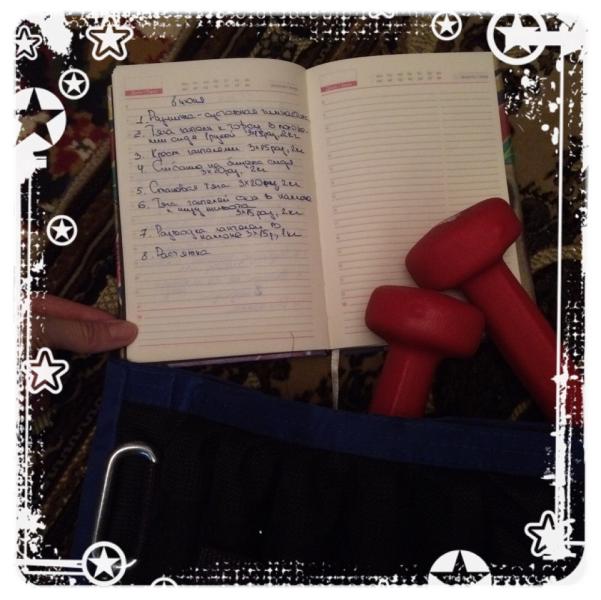 6 июня
1. Разминка - суставная гимнастика
2. Тяга гантели к
3. Жим гантелями 3x15раз, 2кг
4. Сгибания на бицепс сидя
3x20раз, 2кг
5. Становая тяга 3x20раз 2кг
6. Тяга гантелей сидя в наклоне
к низу живота
3x15раз, 2кг
7. Разводка гантелей в
наклоне 3x15р, 2кг
8. Растяжка